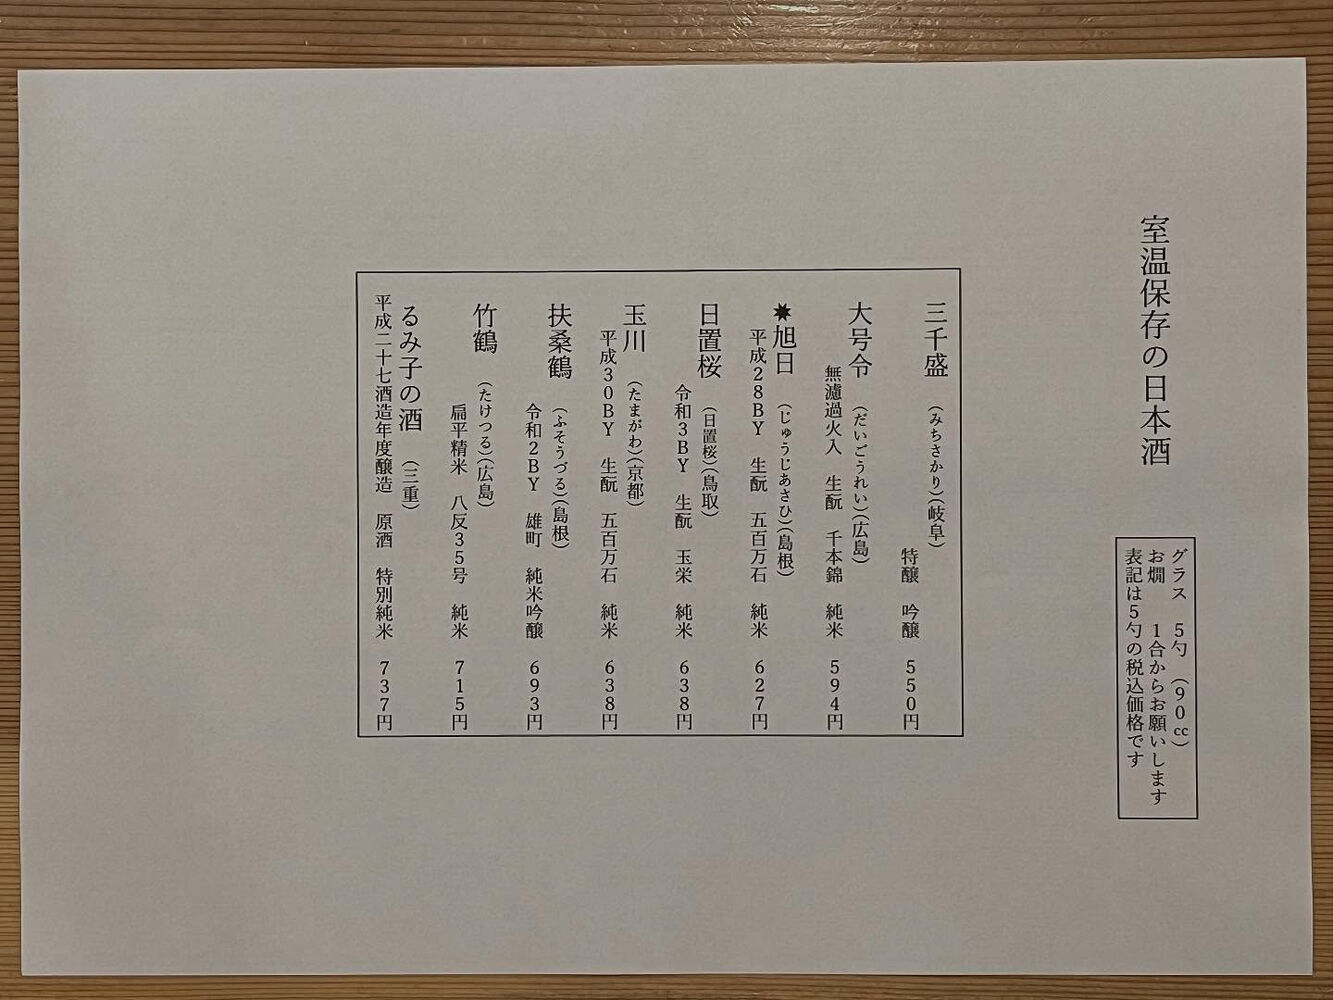 室温保存の日本酒
グラス 5勺 (90cc)
お燗 1合からお願いします
表記は5勺の税込価格です
三千盛 (みちさかり)(岐阜)
特醸 吟醸 550円
大号令 (だいごうれい)(広島)
無濾過火入 生酛 千本錦 純米 594円
✷旭日 (じゅうじあさひ)(島根)
平成28BY 生酛 五百万石 純米 627円
日置桜 (日置桜)(鳥取)
令和3BY 生酛 玉栄 純米 638円
玉川 (たまがわ)(京都)
平成30BY 生酛 五百万石 純米 638円
扶桑鶴 (ふそうづる)(島根)
令和2BY 雄町 純米吟醸 693円
竹鶴 (たけつる)(広島)
扁平精米 八反35号 純米 715円
るみ子の酒 (三重)
平成二十七酒造年度醸造 原酒 特別純米 737円